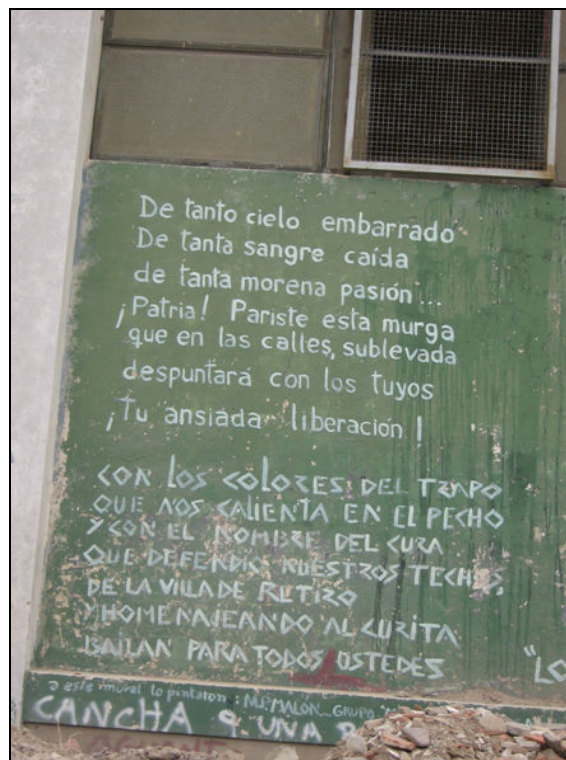 De tanto cielo embarrado
De tanta sangre caída
de tanta morena pasión...
¡Patria! Pariste esta murga
que en las calles, sublevada
despuntará con los tuyos
¡Tu ansiada liberación!
CON LOS COLORES DEL TRAPO
QUE NOS CALIENTA EN EL PECHO
Y CON EL NOMBRE DEL CURA
QUE DEFENDIÓ NUESTROS TECHOS,
DE LA VILLA DE RETIRO
Y HOMENAJEANDO AL CURITA
BAILAN PARA TODOS USTEDES
"LO
este mural lo pintaron: M.P. MALON GRUPO
CANCHA 9 UNA